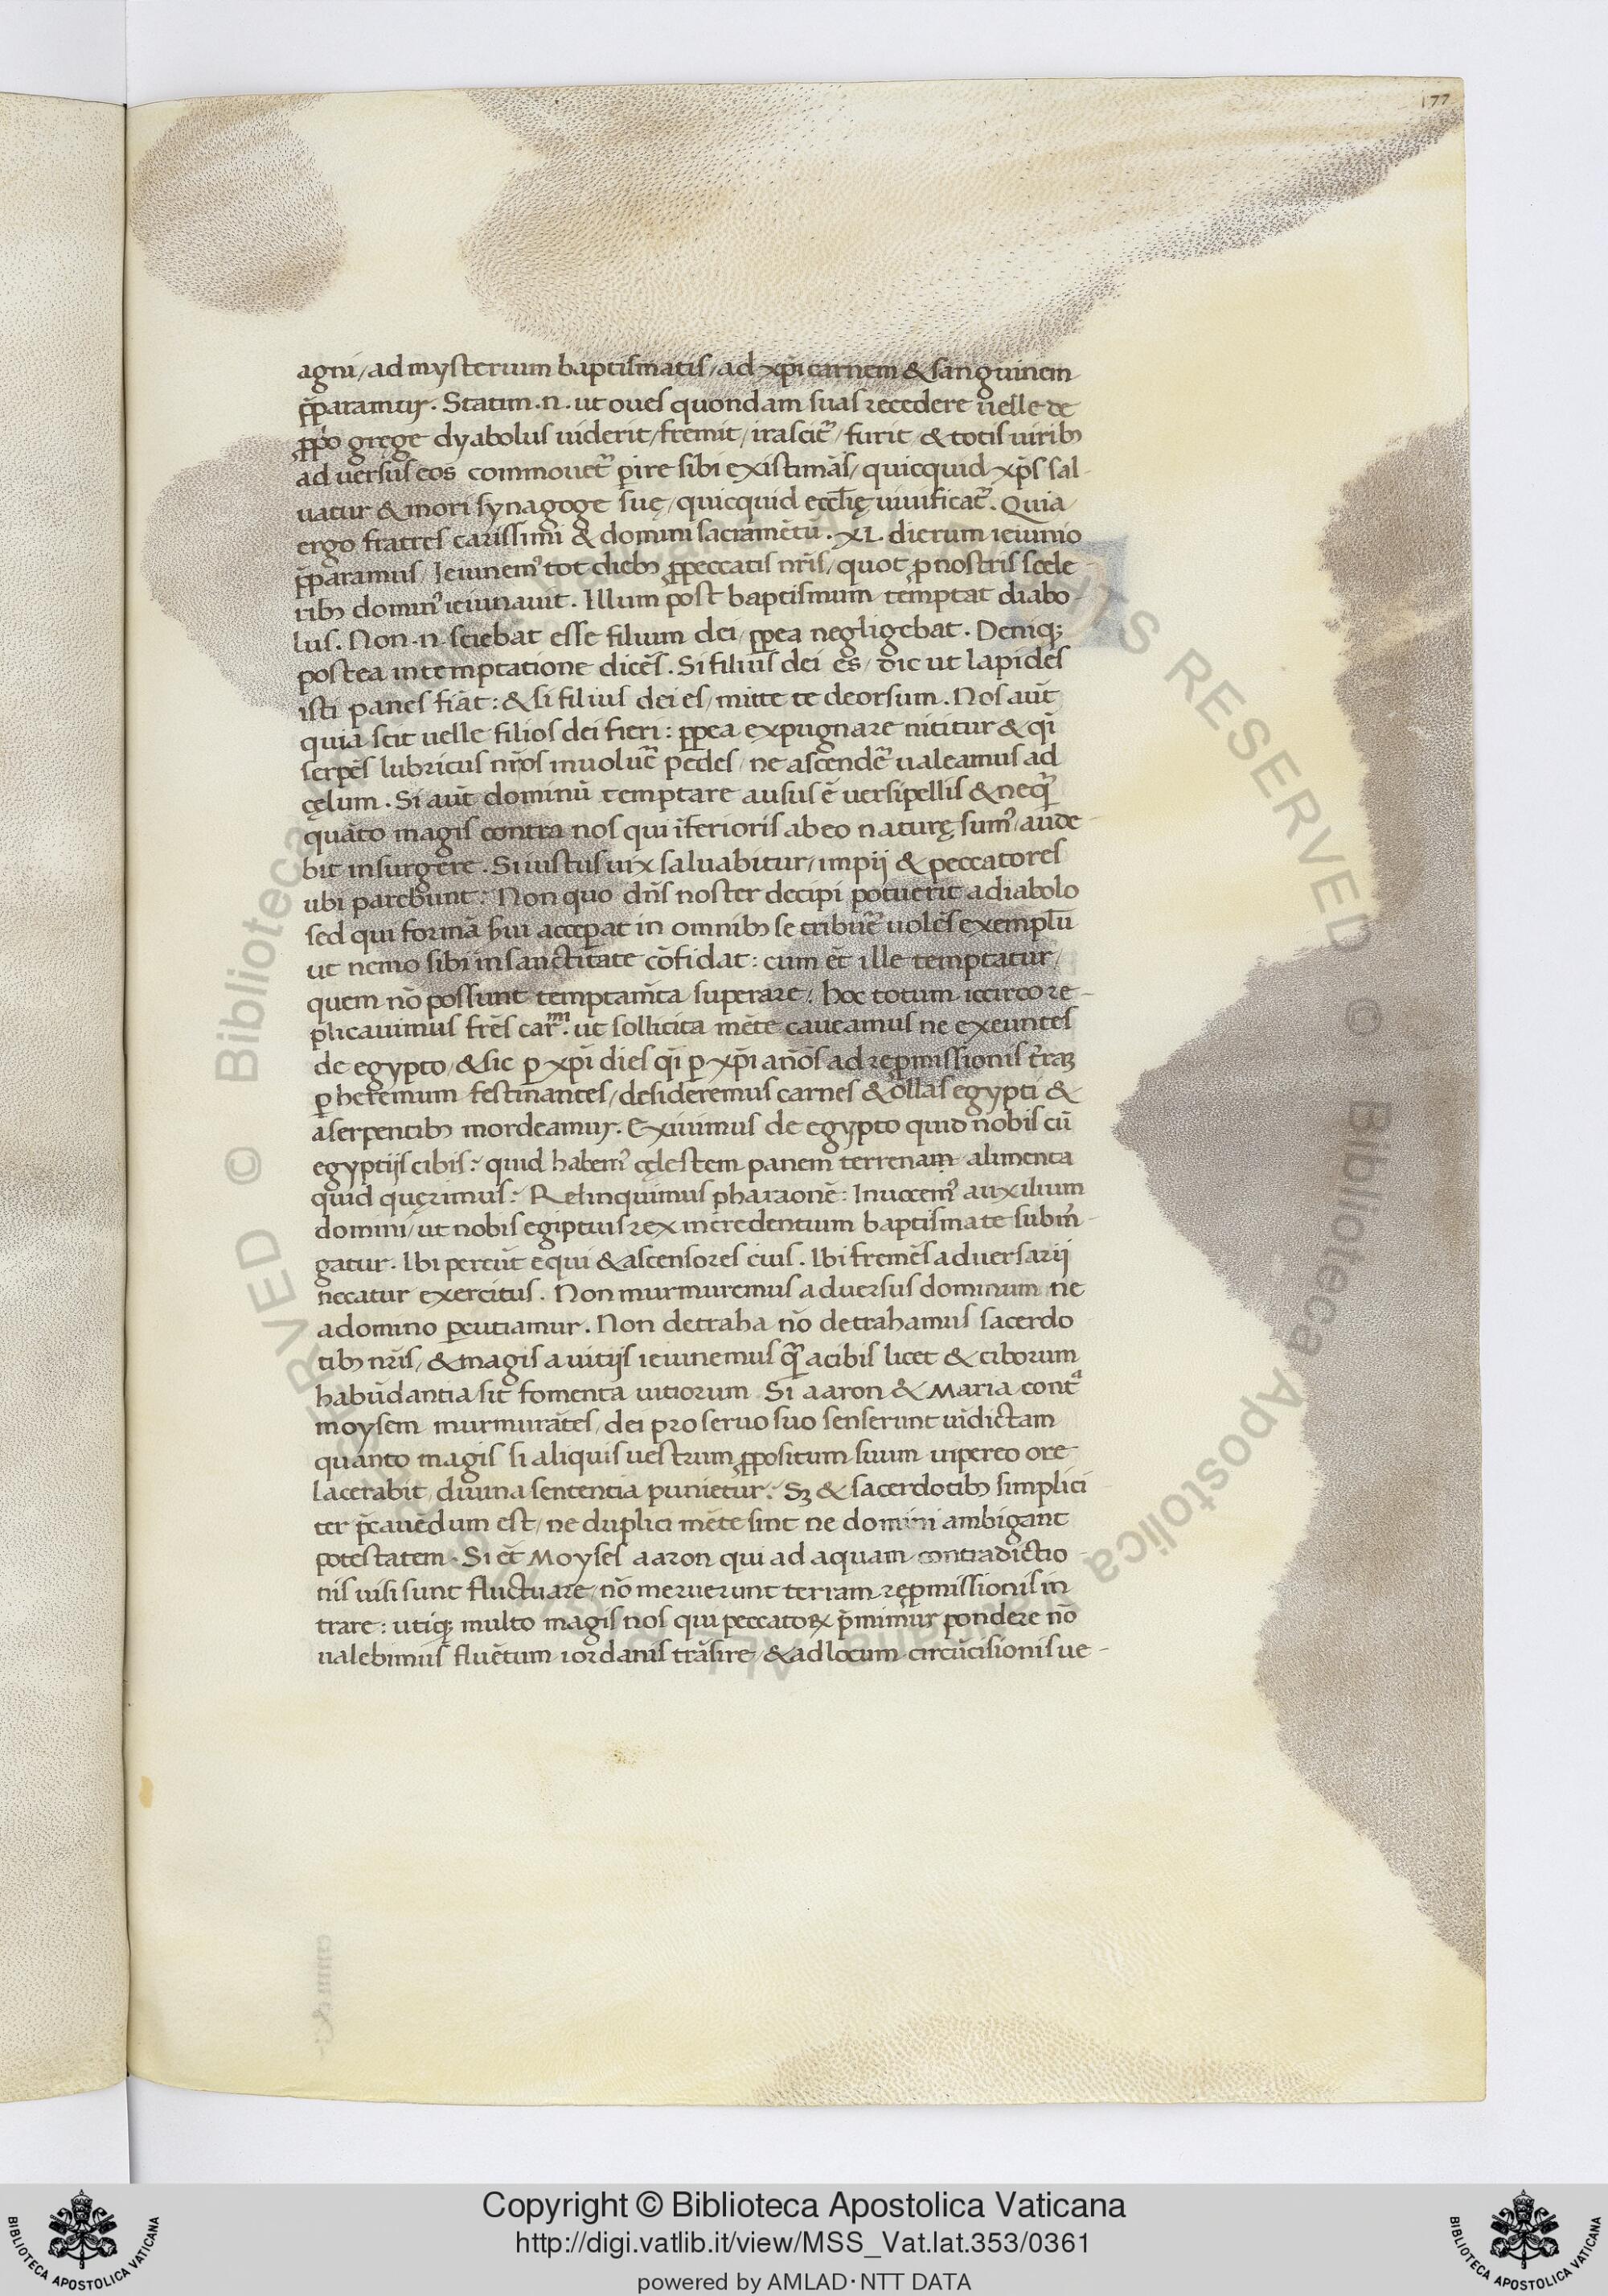 177
agni/ad mysterium baptismatis/ad xp̄i carnem & sanguinem
p̄paramur. Statim .n. ut oues quondam suas recedere uelle de
ꝓpo gręge dyabolus uiderit/fremit/irascit᷑/furit/& totis uirib᷒
ad uersus eos commouet᷑ ꝑire sibi existimās/quicquid xp̄s sal-
uatur & mori synagoge suę/quicquid eccl̄ię uiuificat᷑. Quia/
ergo fratres carissimi & domini sacramētū. XL. dierum ieiunio
p̄paramus/Ieiunem᷒ tot dieb᷒ ꝓ peccatis nr̄is/quot ꝓ nostris scele-
rib᷒ domin᷒ ieiunauit. Illum post baptismum temptat diabo-
lus. Non .n. sciebat esse filium dei/ꝓpea negligebat. Deniq;
postea in temptatione dicēs. Si filius dei es/dic ut lapides
isti panes fiāt: & si filius dei es/mitte te deorsum. Nos aūt
quia scit uelle filios dei fieri: ꝓpea expugnare nititur & q̄i
serpēs lubricus nr̄os inuoluer᷑ pedes/ne ascender᷑ ualeamus ad
cęlum. Si aūt dominū temptare ausus ē uersipellis & neq̄᷑
quāto magis contra nos qui īferioris ab eo naturę sum᷒/aude-
bit insurgere. Si iustus uix saluabitur/impij & peccatores
ubi parebunt: Non quo dn̄s noster decipi potuerit a diabolo
sed qui formā ẜui acceꝑat in omnib᷒ se tribuer᷑ uolēs exemplū
ut nemo sibi in sanctitate cōfidat: cum ēt ille temptatur/
quem nō possunt temptam̄ta superare: hoc totum iccirco re-
plicauimus fr̄es car.ᵐⁱ ut sollicita mēte caueamus ne exeuntes
de egypto/& sic ꝑ xp̄i dies q̄i ꝑ xp̄i an̄os ad reꝓmissionis t̄raꝝ
ꝑ heremum festinantes/desideremus carnes & ollas egypti &
a serpentib᷒ mordeamur. Exiuimus de egypto quid nobis cū
egyptijs cibis: quid habem᷒ cęlestem panem terrenam alimenta
quid quęrimus: Relinquimus pharaonē: Inuocem᷒ auxilium
domini/ut nobis egiptius rex in credentium baptismate subm̄-
gatur. Ibi pereūt equi & ascensores eius. Ibi fremēs aduersarij
necatur exercitus. Non murmuremus aduersus dominum ne
a domino ꝑcutiamur. Non detraha nō detrahamus sacerdo
tib᷒ nr̄is/& magis a uitijs ieiunemus q̄᷑ a cibis licet & ciborum
habūdantia sit fomenta uitiorum Si aaron & Maria contᵃ
moysem murmurātes/dei pro seruo suo senserunt uīdictam
quanto magis si aliquis uestrum ꝓpositum suum uipereo ore
lacerabit diuina sententia punietur: Sꝫ & sacerdotib᷒ simplici
ter p̄cauēdum est/ne duplici mēte sint ne domini ambigant
potestatem. Si ēt Moyses aaron qui ad aquam contradictio-
nis uisi sunt fluctuare/nō meruerunt terram reꝓmissionis in
trare: utiq; multo magis nos qui peccatoꝝ p̄mimur pondere nō
ualebimus fluētum iordanis trāsire/& ad locum circūcisionis ue-
Copyright © Biblioteca Apostolica Vaticana
http://digi.vatlib.it/view/MSS_Vat.lat.353/0361
powered by AMLAD·NTT DATA